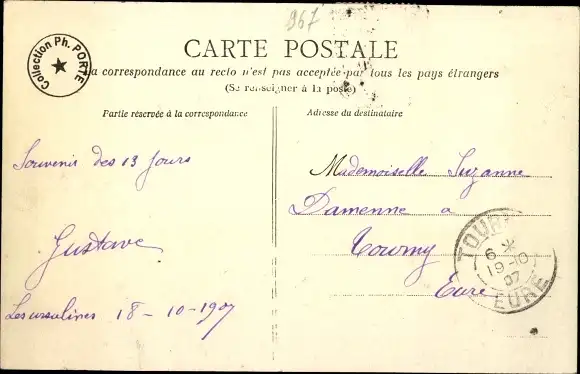 967
Collection Ph. PORTE
CARTE POSTALE
La correspondance au recto n'est pas acceptée par tous les pays étrangers
(Se renseigner à la poste)
Partie réservée à la correspondance
Adresse du destinataire
Souvenir des 13 Jours
Gustave
Les ursulines 18 - 10 - 1907
Mademoiselle Suzanne
Damenne a
Tourny
Eure
TOUR
6 *
19-10
07
EURE